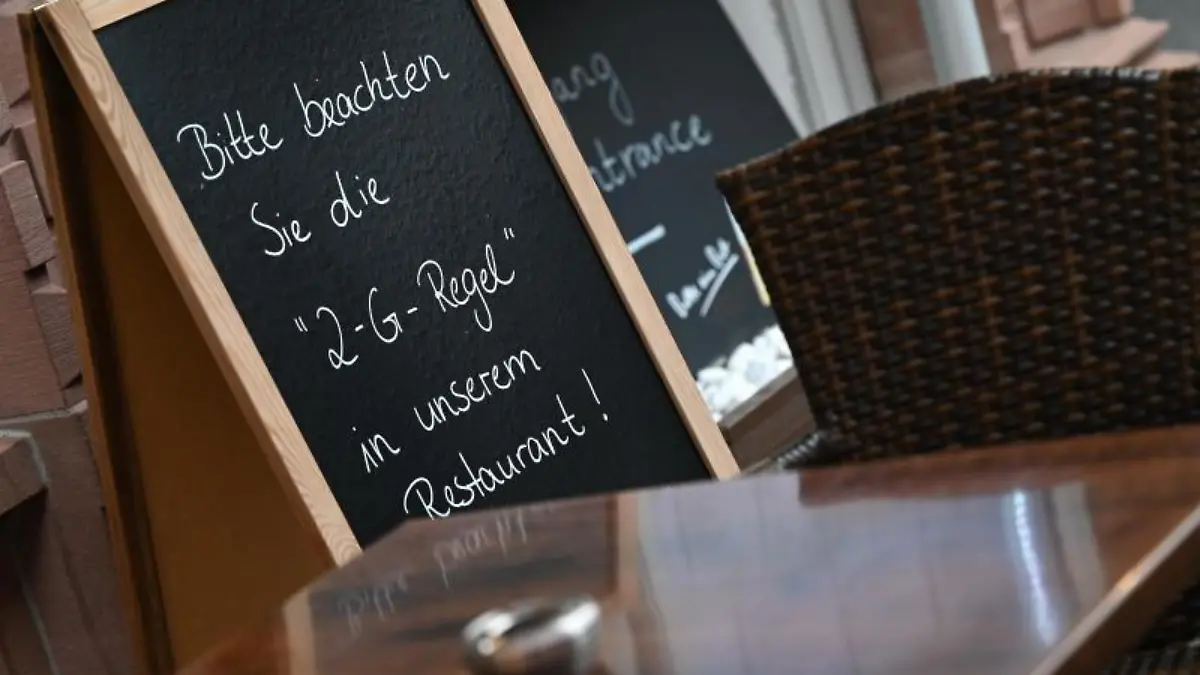 Bitte beachten
Sie die
"2-G-Regel"
in unserem
Restaurant!